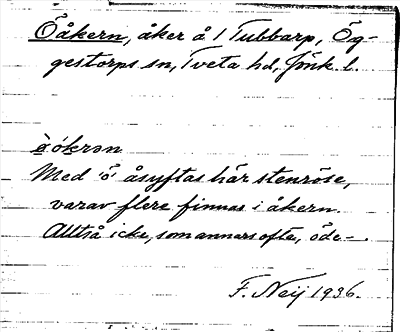 Öåkern, åker å 1 Tubbarp, Ög-
gestorps sn, Tveta hd, Jönk. l.
ö̀ókrən
Med "ö" åsyftas här stenröse,
varav flere finnas i åkern.
Alltså icke, som annars ofta, öde-.
F. Neij 1936.